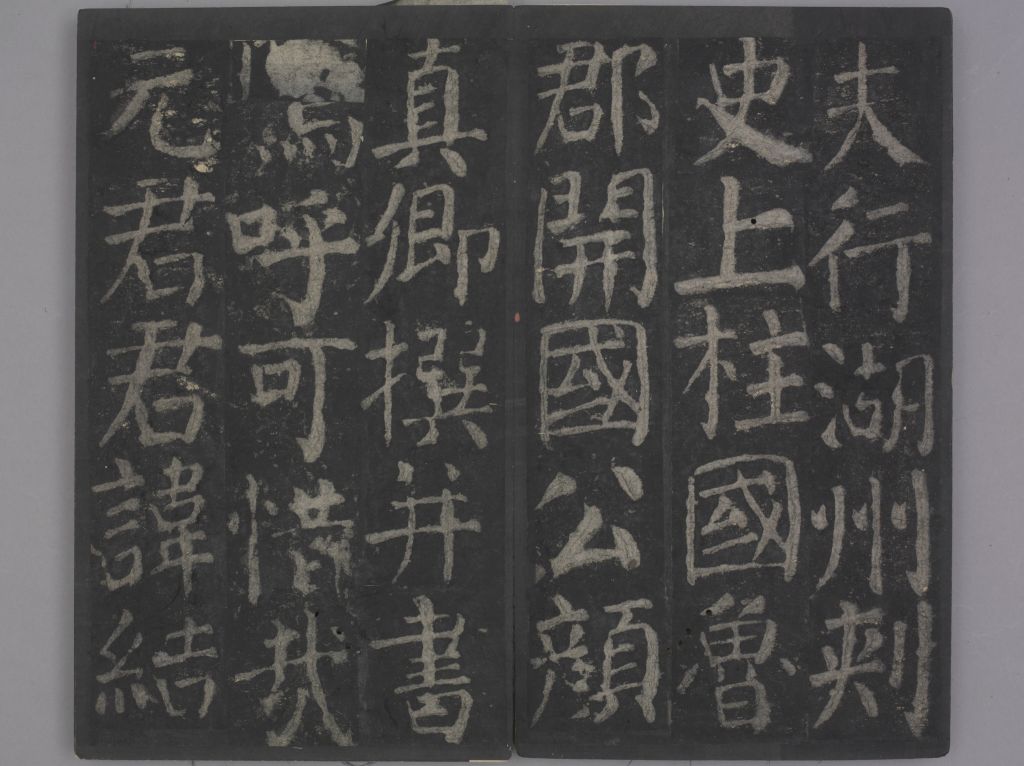 夫行湖州刺
史上柱國魯
郡開國公顔
真卿撰并書
嗚呼可惜哉
元君君諱結